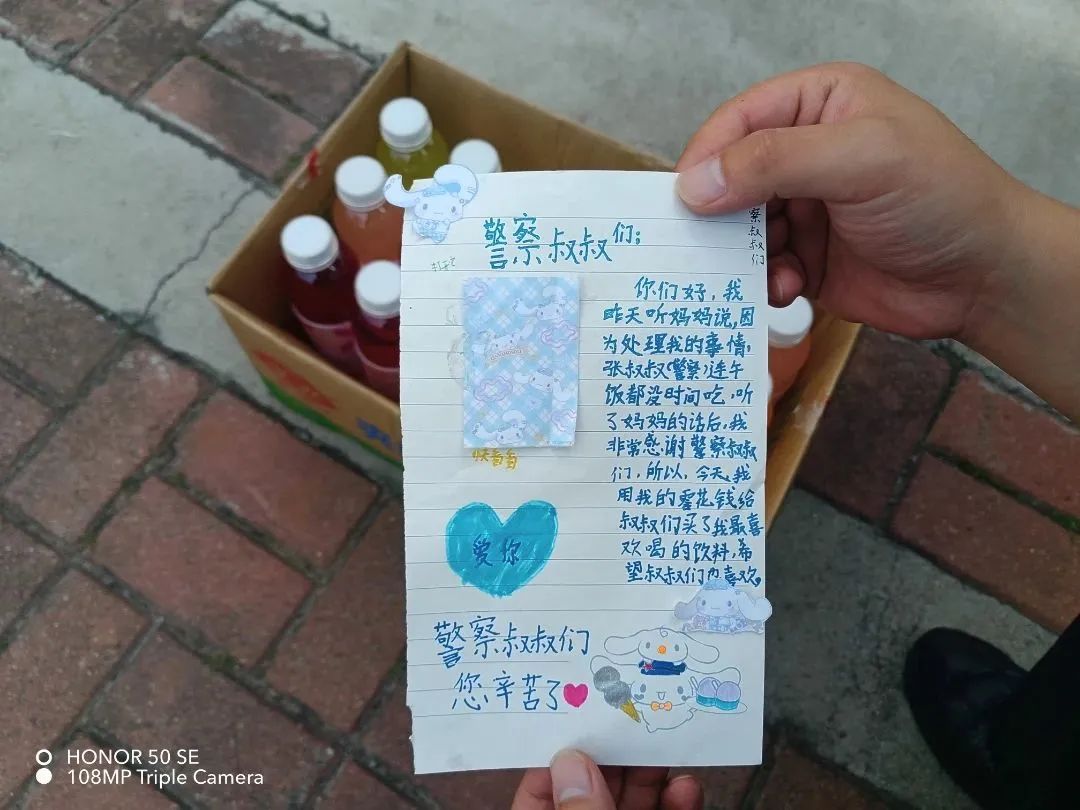 警察叔叔们;
察叔叔们
你们好，我
昨天听妈妈说,因
为处理我的事情,
张叔叔(警察)连午
饭都没时间吃,听
了妈妈的话后,我
非常感谢警察叔叔
们，所以，今天,我
用我的零花钱给
叔叔们买了我最喜
欢喝的饮料,希
望叔叔们也喜欢。
快看看
爱你
警察叔叔们
您辛苦了
HONOR 50 SE
108MP Triple Camera